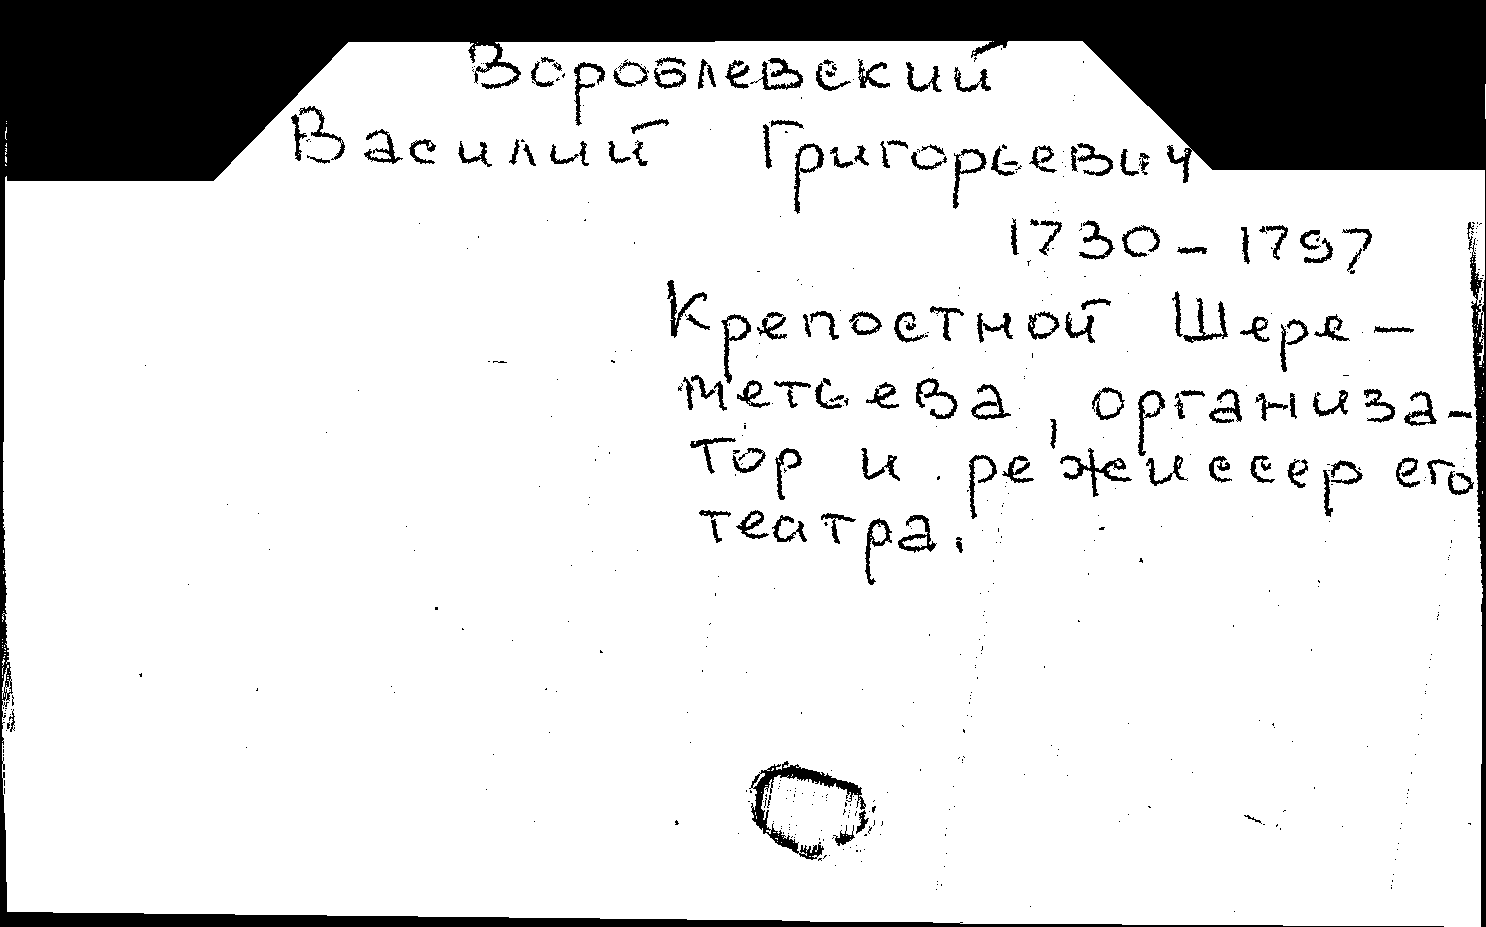 Вороблевский
Василий Григорьевич
1730-1797
Крепостной Шере-
метьева, организа-
тор и режиссер его
театра.